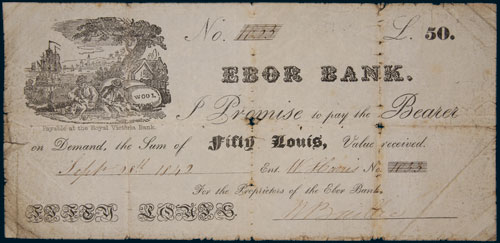 No. 1433 L. 50.
WOOL
EBOR BANK.
I Promise to pay the Bearer
Payable at the Royal Victoria Bank.
on Demand, the Sum of Fifty Louis, Value received.
Sept 28th 1839 Ent. No.
For the Proprietors of the Ebor Bank,
FIFTY LOUIS.